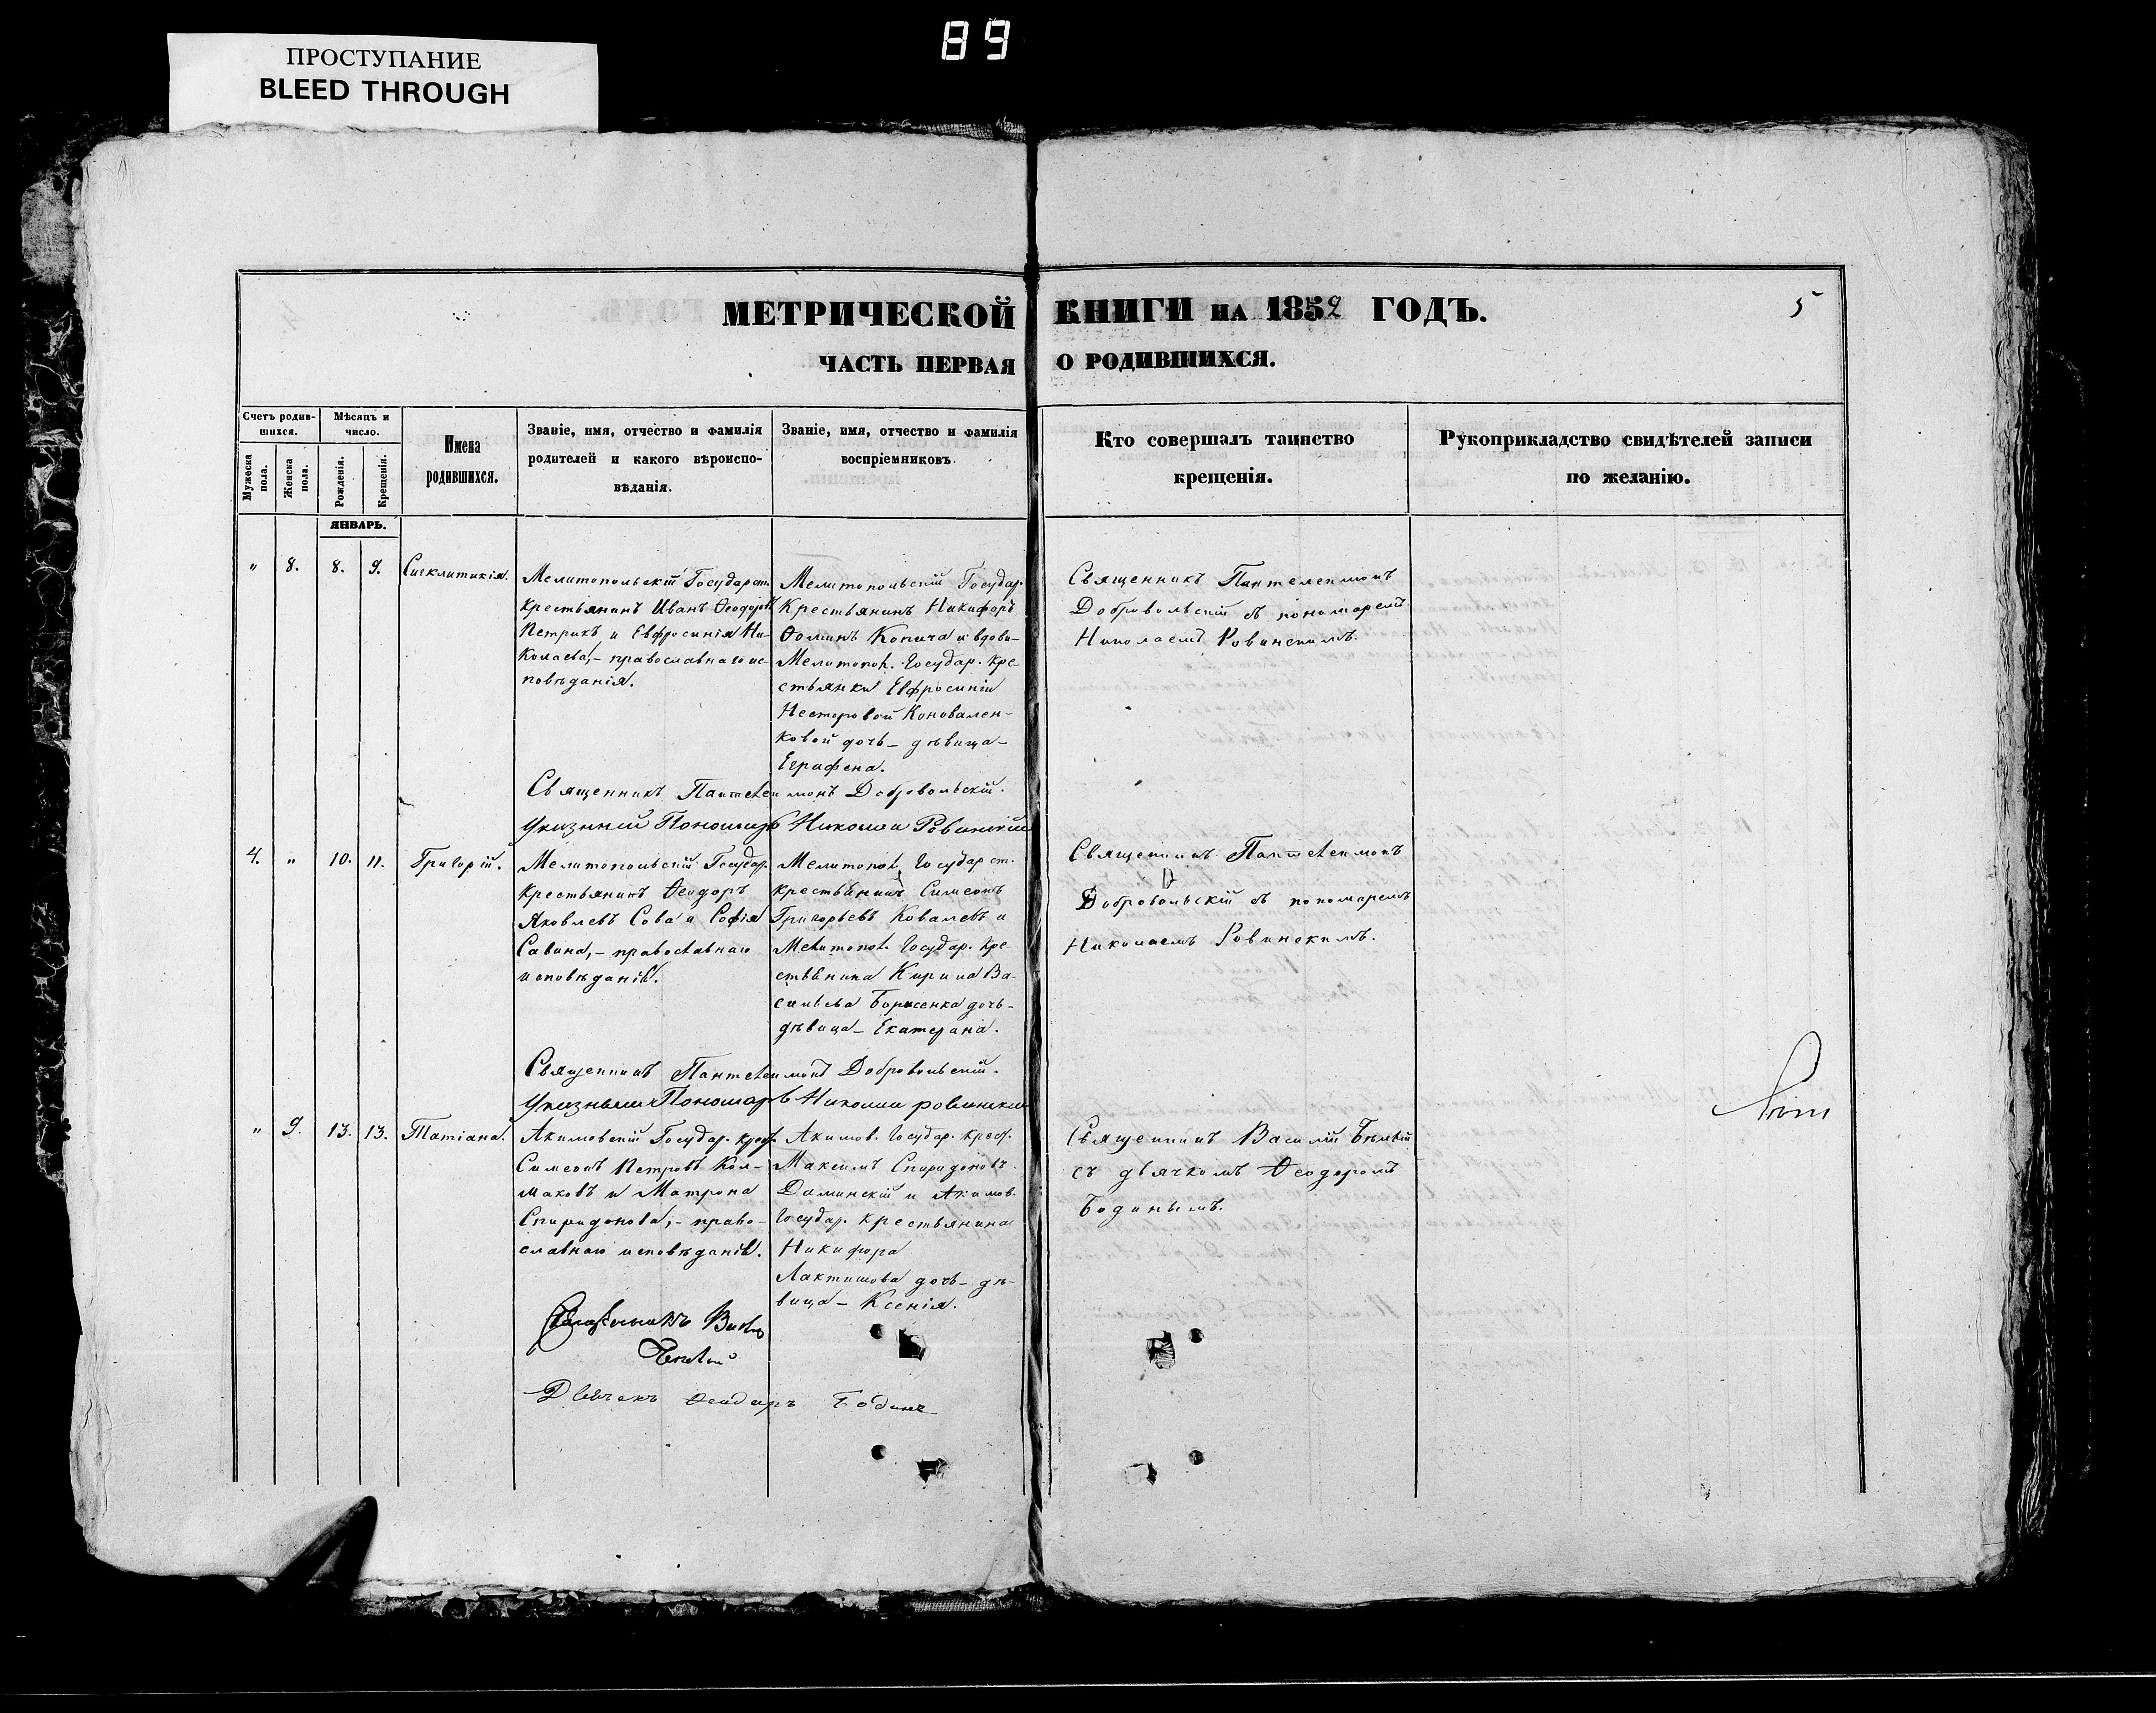 89
ПРОСТУПАНИЕ
BLEED THROUGH
МЕТРИЧЕСКОЙ КНИГИ НА 1852 ГОДЪ.
5
ЧАСТЬ ПЕРВАЯ О РОДИВШИХСЯ.
Счетъ родив-
шихся.
Мѣсяцъ и
число.
Мужеска
пола.
Женска
пола.
Рожденія.
Крещенія.
Имена
родившихся.
Званіе, имя, отчество и фамилія
родителей и какого вѣроиспо-
вѣданія.
Званіе, имя, отчество и фамилія
воспріемниковъ.
Кто совершалъ таинство
крещенія.
Рукоприкладство свидѣтелей записи
по желанію.
ЯНВАРЬ.
" 8. 8. 9. Сигклитикія.
Мелитопольскій Государст.
крестьянинъ Иванъ Ѳеодоровъ
Петрикъ и Евфросинія Ни-
колаева,- православнаго ис-
повѣданія.
Мелитопольскій Государ.
Крестьянинъ Никифоръ
Ѳоминъ Копича и вдовы-
Мелитопол. Государ. кре
стьянки Евфросиніи
Несторовой Коновален-
ковой дочь- дѣвица-
Еграфена.
Священникъ Пантелеимонъ
Добровольскій съ пономаремъ
Николаемъ Ровинскимъ.
Священникъ Пантелеимонъ Добровольскій.
Указный Пономарь Николай Ровинскій
4. " 10. 11. Григорій.
Мелитопольскій Государ.
крестьянинъ Ѳеодоръ
Яковлевъ Сова и Софія
Савина,- православнаго
исповѣданія.
Мелитопол. Государст.
крестьянинъ Симеонъ
Григорьевъ Ковалевъ и
Мелитопол. Государ. кре
стьянина Кирила Ва-
сильева Борисенка дочь-
дѣвица- Екатерина.
Священникъ Пантелеимонъ
Добровольскій съ пономаремъ
Николаемъ Ровинскимъ.
Священникъ Пантелеимонъ Добровольскій.
Указный Пономарь Николай Ровинский
" 9. 13. 13. Татіана.
Акимовскій Государ. крест.
Симеонъ Петровъ Кол-
маковъ и Матрона
Спиридонова,- право-
славнаго исповѣданія.
Акимов. Государ. крест.
Максимъ Спиридоновъ
Даминскій и Акимов.
Государ. крестьянина
Никифора
Лактишова дочь- дѣ-
вица- Ксенія.
Священникъ Василій Бѣлый
съ дьячкомъ Ѳеодоромъ
Бодинымъ.
Священникъ
Дьячекъ Ѳеодоръ Бодинъ